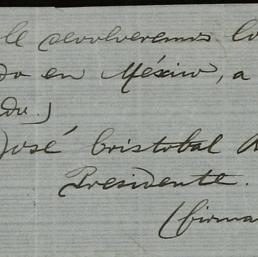 le devolveremos lo
do en México, a
du.)
José Cristobal
Presidente.
(firma